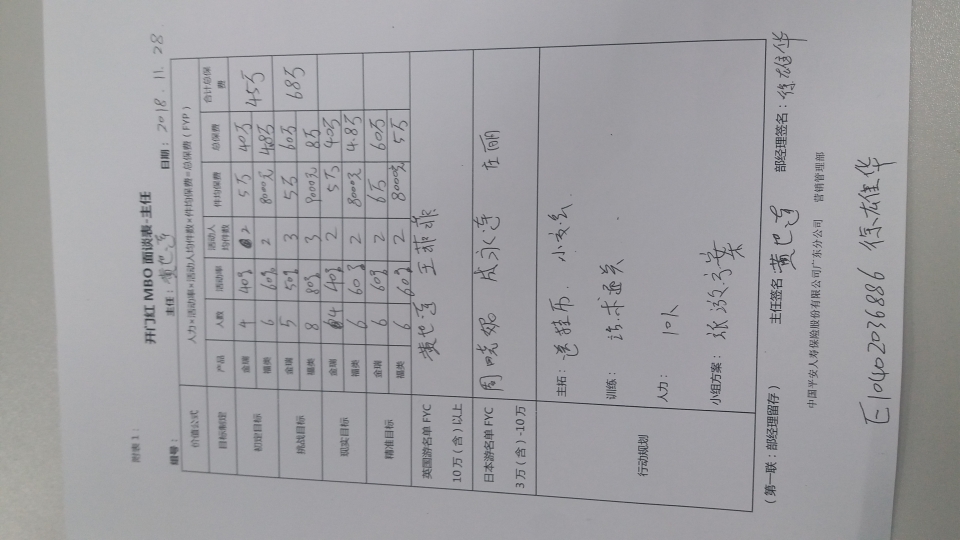 附表1：
开门红 MBO 面谈表-主任
组号： 主任： 日期：2018.11.28
价值公式 人力×活动率×活动人均件数×件均保费=总保费（FYP）
目标制定 产品 人数 活动率 活动人均件数 件均保费 总保费 合计总保费
初定目标 金瑞 4 40% 2 5万 40万 45万
福类 6 60% 2 8000元 4.8万
挑战目标 金瑞 5 50% 3 5万 60万 68万
福类 8 80% 3 9000元 8万
现实目标 金瑞 4 40% 2 5万 40万
福类 6 60% 2 8000元 4.8万
精准目标 金瑞 6 60% 2 6万 60万
福类 6 60% 2 8000元 5万
英国游名单 FYC 10万（含）以上 王菲菲
日本游名单 FYC 3万（含）-10万 周晓 成永连 左丽
行动规划
主拓：
训练：话术通关
人力：10人
小组方案：
（第一联：部经理留存） 主任签名： 部经理签名：徐雄华
中国平安人寿保险股份有限公司广东分公司 营销管理部
10402036886 徐雄华